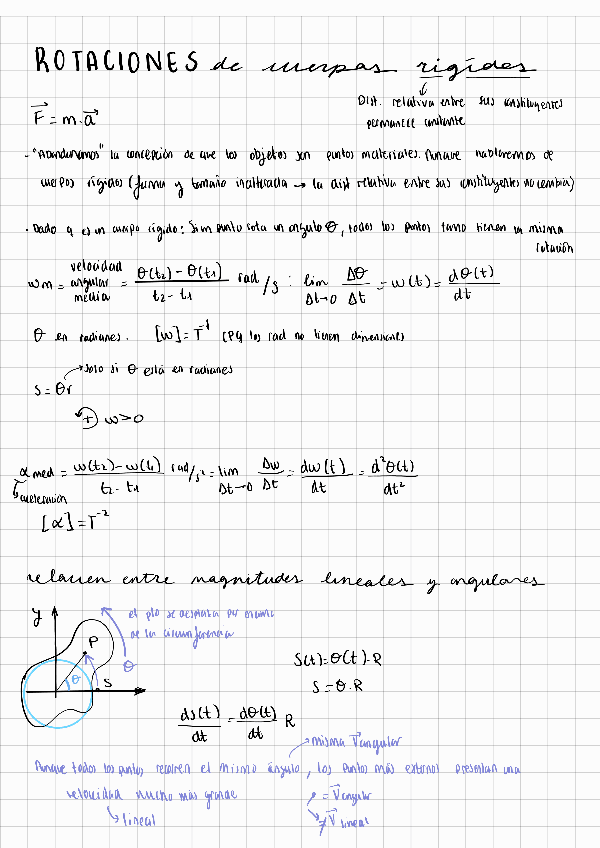 ROTACIONES de cuerpos rigidos
Dist. relativa entre sus constituyentes
permanece constante
F⃗ = m.a⃗
- "Abandonamos" la concepción de que los objetos son puntos materiales. Aunque hablaremos de
cuerpos rígidos (forma y tamaño inalterada → la dist relativa entre sus constituyentes no cambia)
· Dado q es un cuerpo rígido: Si un punto rota un angulo θ, todos los puntos tienen la misma
rotación
wm = velocidad angular media = θ(t2) - θ(t1) / t2 - t1 rad/s : lim Δt→0 Δθ/Δt = w(t) = dθ(t)/dt
θ en radianes. [w] = T⁻¹ (PQ los rad no tienen dimensiones)
→ solo si θ está en radianes
S = θr
+ w>0
α med = w(t2) - w(t1) / t2 - t1 rad/s² = lim Δt→0 Δw/Δt = dw(t)/dt = d²θ(t)/dt²
aceleración
[α] = T⁻²
relacion entre magnitudes lineales y angulares
y
el pto se desplaza por encima
de la circunferencia
P
θ
θ
S
S(t) = θ(t).R
S = θ.R
ds(t)/dt = dθ(t)/dt R
→ misma V⃗ angular
Aunque todos los puntos recorren el mismo ángulo, los puntos más externos presentan una
velocidad mucho más grande
→ lineal
= V⃗ angular
≠ V⃗ lineal